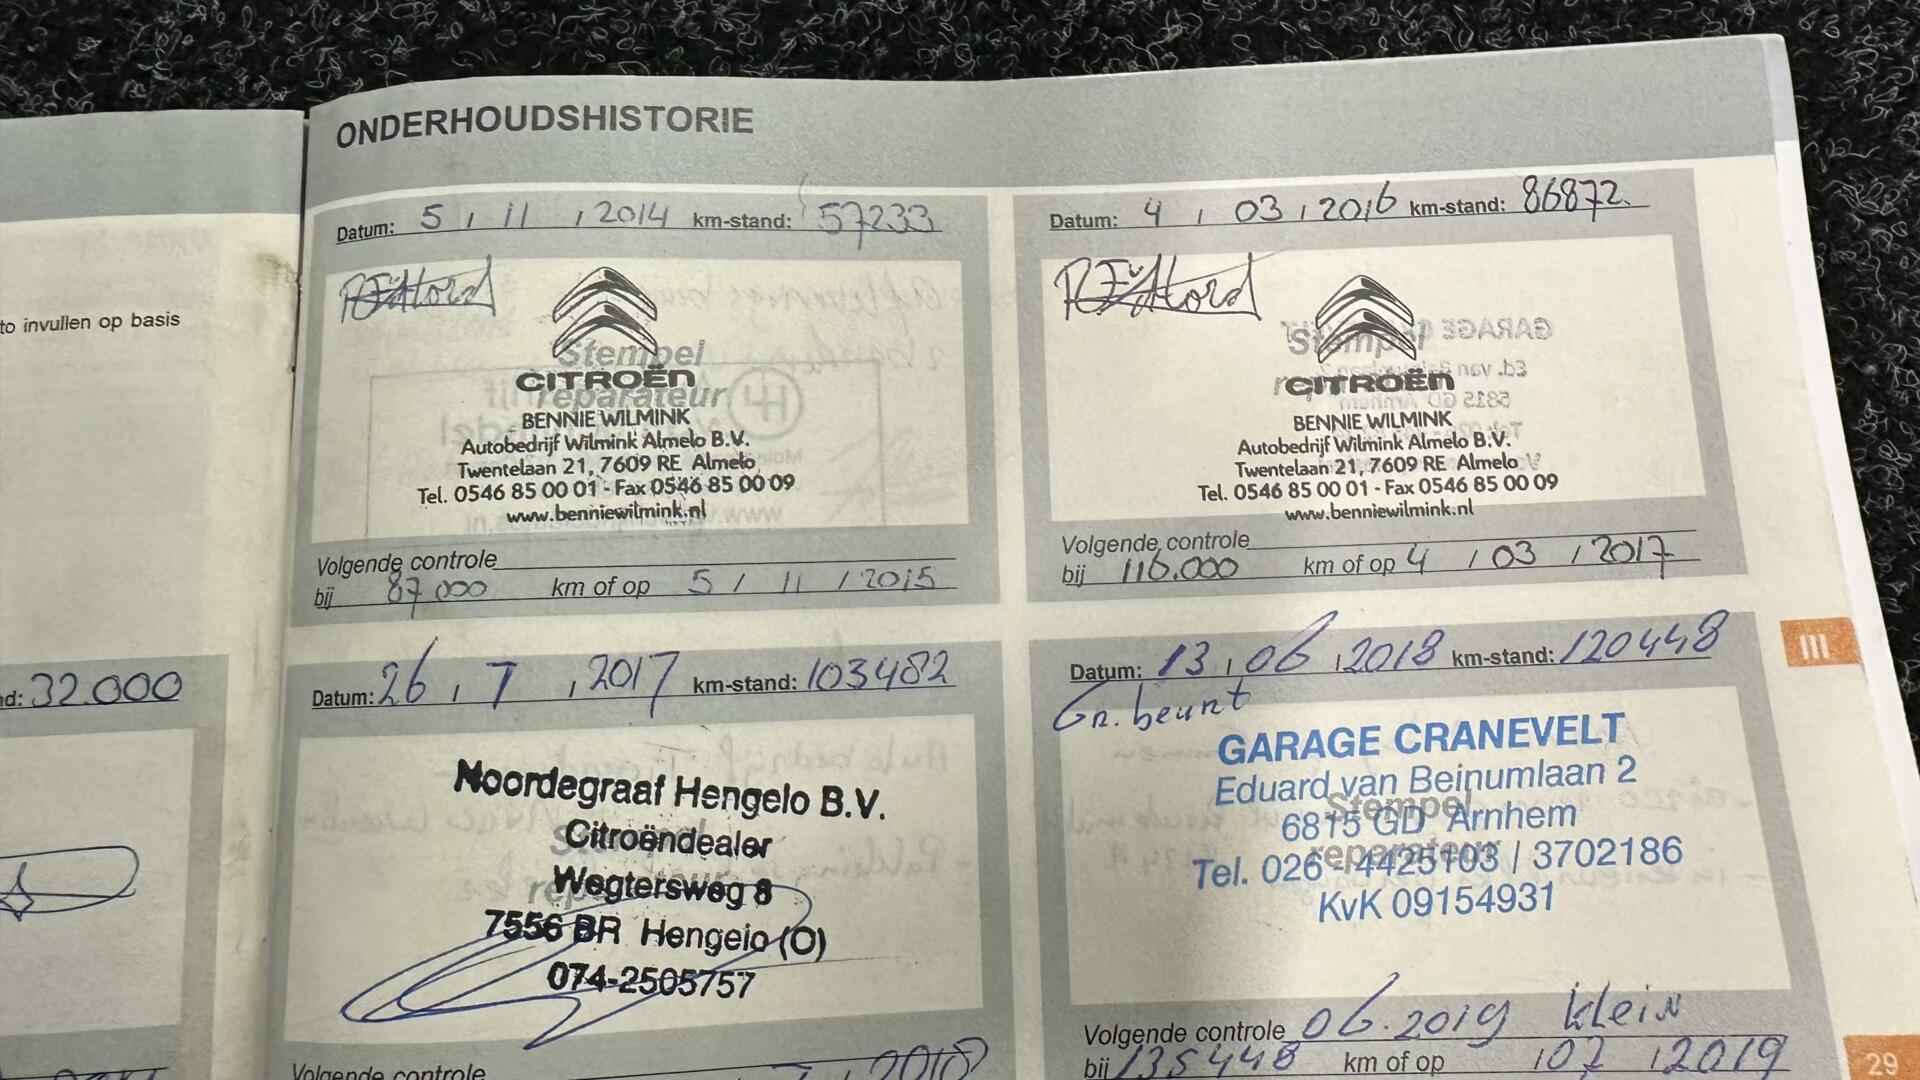 ONDERHOUDSHISTORIE
to invullen op basis
d: 32.000
Datum: 5 / 11 / 2014 km-stand: 57233
Stempel
CITROËN
reparateur
BENNIE WILMINK
Autobedrijf Wilmink Almelo B.V.
Twentelaan 21, 7609 RE Almelo
Tel. 0546 85 00 01 - Fax 0546 85 00 09
www.benniewilmink.nl
Volgende controle
bij 87000 km of op 5 / 11 / 2015
Datum: 4 / 03 / 2016 km-stand: 86872
Stempel
CITROËN
BENNIE WILMINK
Autobedrijf Wilmink Almelo B.V.
Twentelaan 21, 7609 RE Almelo
Tel. 0546 85 00 01 - Fax 0546 85 00 09
www.benniewilmink.nl
Volgende controle
bij 116.000 km of op 4 / 03 / 2017
Datum: 26 / 7 / 2017 km-stand: 103482
Noordegraaf Hengelo B.V.
Citroëndealer
Wegtersweg 8
7556 BR Hengelo (O)
074-2505757
Volgende controle
2018
Datum: 13 / 06 / 2018 km-stand: 120448
Gr. beurt
GARAGE CRANEVELT
Eduard van Beinumlaan 2
Stempel
6815 GD Arnhem
reparateur
Tel. 026 - 4425103 / 3702186
KvK 09154931
Volgende controle 06.2019 klein
bij 135448 km of op / 07 / 2019
III
29